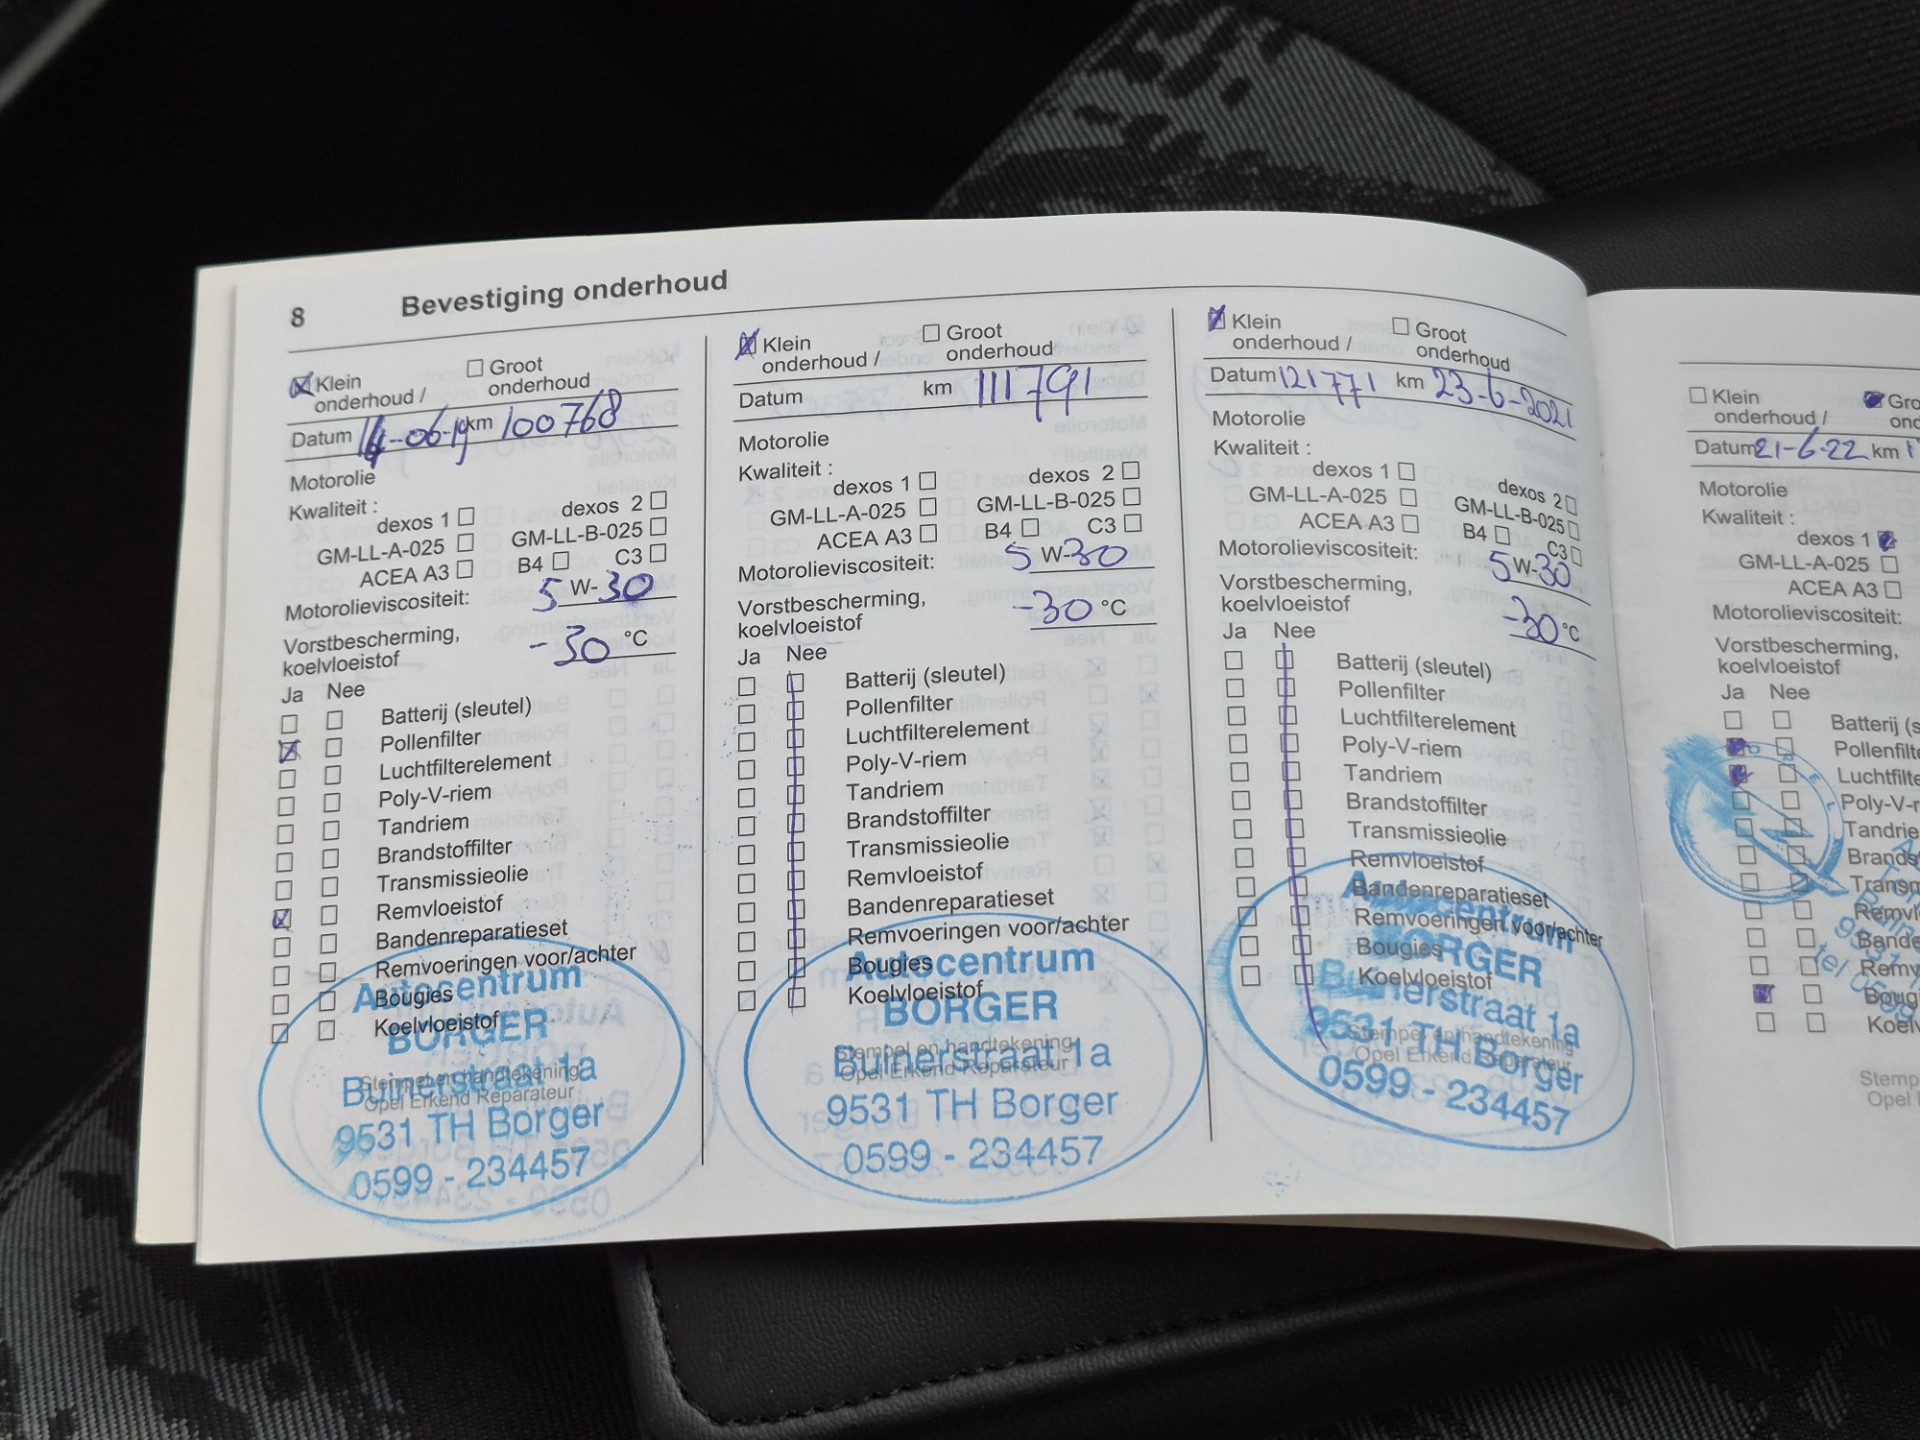 8 Bevestiging onderhoud
Klein onderhoud / Groot onderhoud
Datum 14-06-19 km 100768
Motorolie
Kwaliteit :
dexos 1 dexos 2
GM-LL-A-025 GM-LL-B-025
ACEA A3 B4 C3
Motorolieviscositeit: 5 W-30
Vorstbescherming,
koelvloeistof -30 °C
Ja Nee
Batterij (sleutel)
Pollenfilter
Luchtfilterelement
Poly-V-riem
Tandriem
Brandstoffilter
Transmissieolie
Remvloeistof
Bandenreparatieset
Remvoeringen voor/achter
Bougies
Koelvloeistof
Stempel en handtekening
Opel Erkend Reparateur
Autocentrum
BORGER
Buinerstraat 1a
9531 TH Borger
0599 - 234457
Klein onderhoud / Groot onderhoud
Datum km 111791
Motorolie
Kwaliteit :
dexos 1 dexos 2
GM-LL-A-025 GM-LL-B-025
ACEA A3 B4 C3
Motorolieviscositeit: 5 W-30
Vorstbescherming,
koelvloeistof -30 °C
Ja Nee
Batterij (sleutel)
Pollenfilter
Luchtfilterelement
Poly-V-riem
Tandriem
Brandstoffilter
Transmissieolie
Remvloeistof
Bandenreparatieset
Remvoeringen voor/achter
Bougies
Koelvloeistof
Stempel en handtekening
Opel Erkend Reparateur
Autocentrum
BORGER
Buinerstraat 1a
9531 TH Borger
0599 - 234457
Klein onderhoud / Groot onderhoud
Datum 121771 km 23-6-2021
Motorolie
Kwaliteit :
dexos 1 dexos 2
GM-LL-A-025 GM-LL-B-025
ACEA A3 B4 C3
Motorolieviscositeit: 5 W-30
Vorstbescherming,
koelvloeistof -30 °C
Ja Nee
Batterij (sleutel)
Pollenfilter
Luchtfilterelement
Poly-V-riem
Tandriem
Brandstoffilter
Transmissieolie
Remvloeistof
Bandenreparatieset
Remvoeringen voor/achter
Bougies
Koelvloeistof
Stempel en handtekening
Opel Erkend Reparateur
Autocentrum
BORGER
Buinerstraat 1a
9531 TH Borger
0599 - 234457
Klein onderhoud / Gro
Datum 21-6-22 km
Motorolie
Kwaliteit :
dexos 1
GM-LL-A-025
ACEA A3
Motorolieviscositeit:
Vorstbescherming,
koelvloeistof
Ja Nee
Batterij (s
Pollenfilte
Luchtfilte
Poly-V-r
Tandrie
Brands
Transm
Remvl
Bande
Remv
Bougi
Koelv
Stemp
Opel